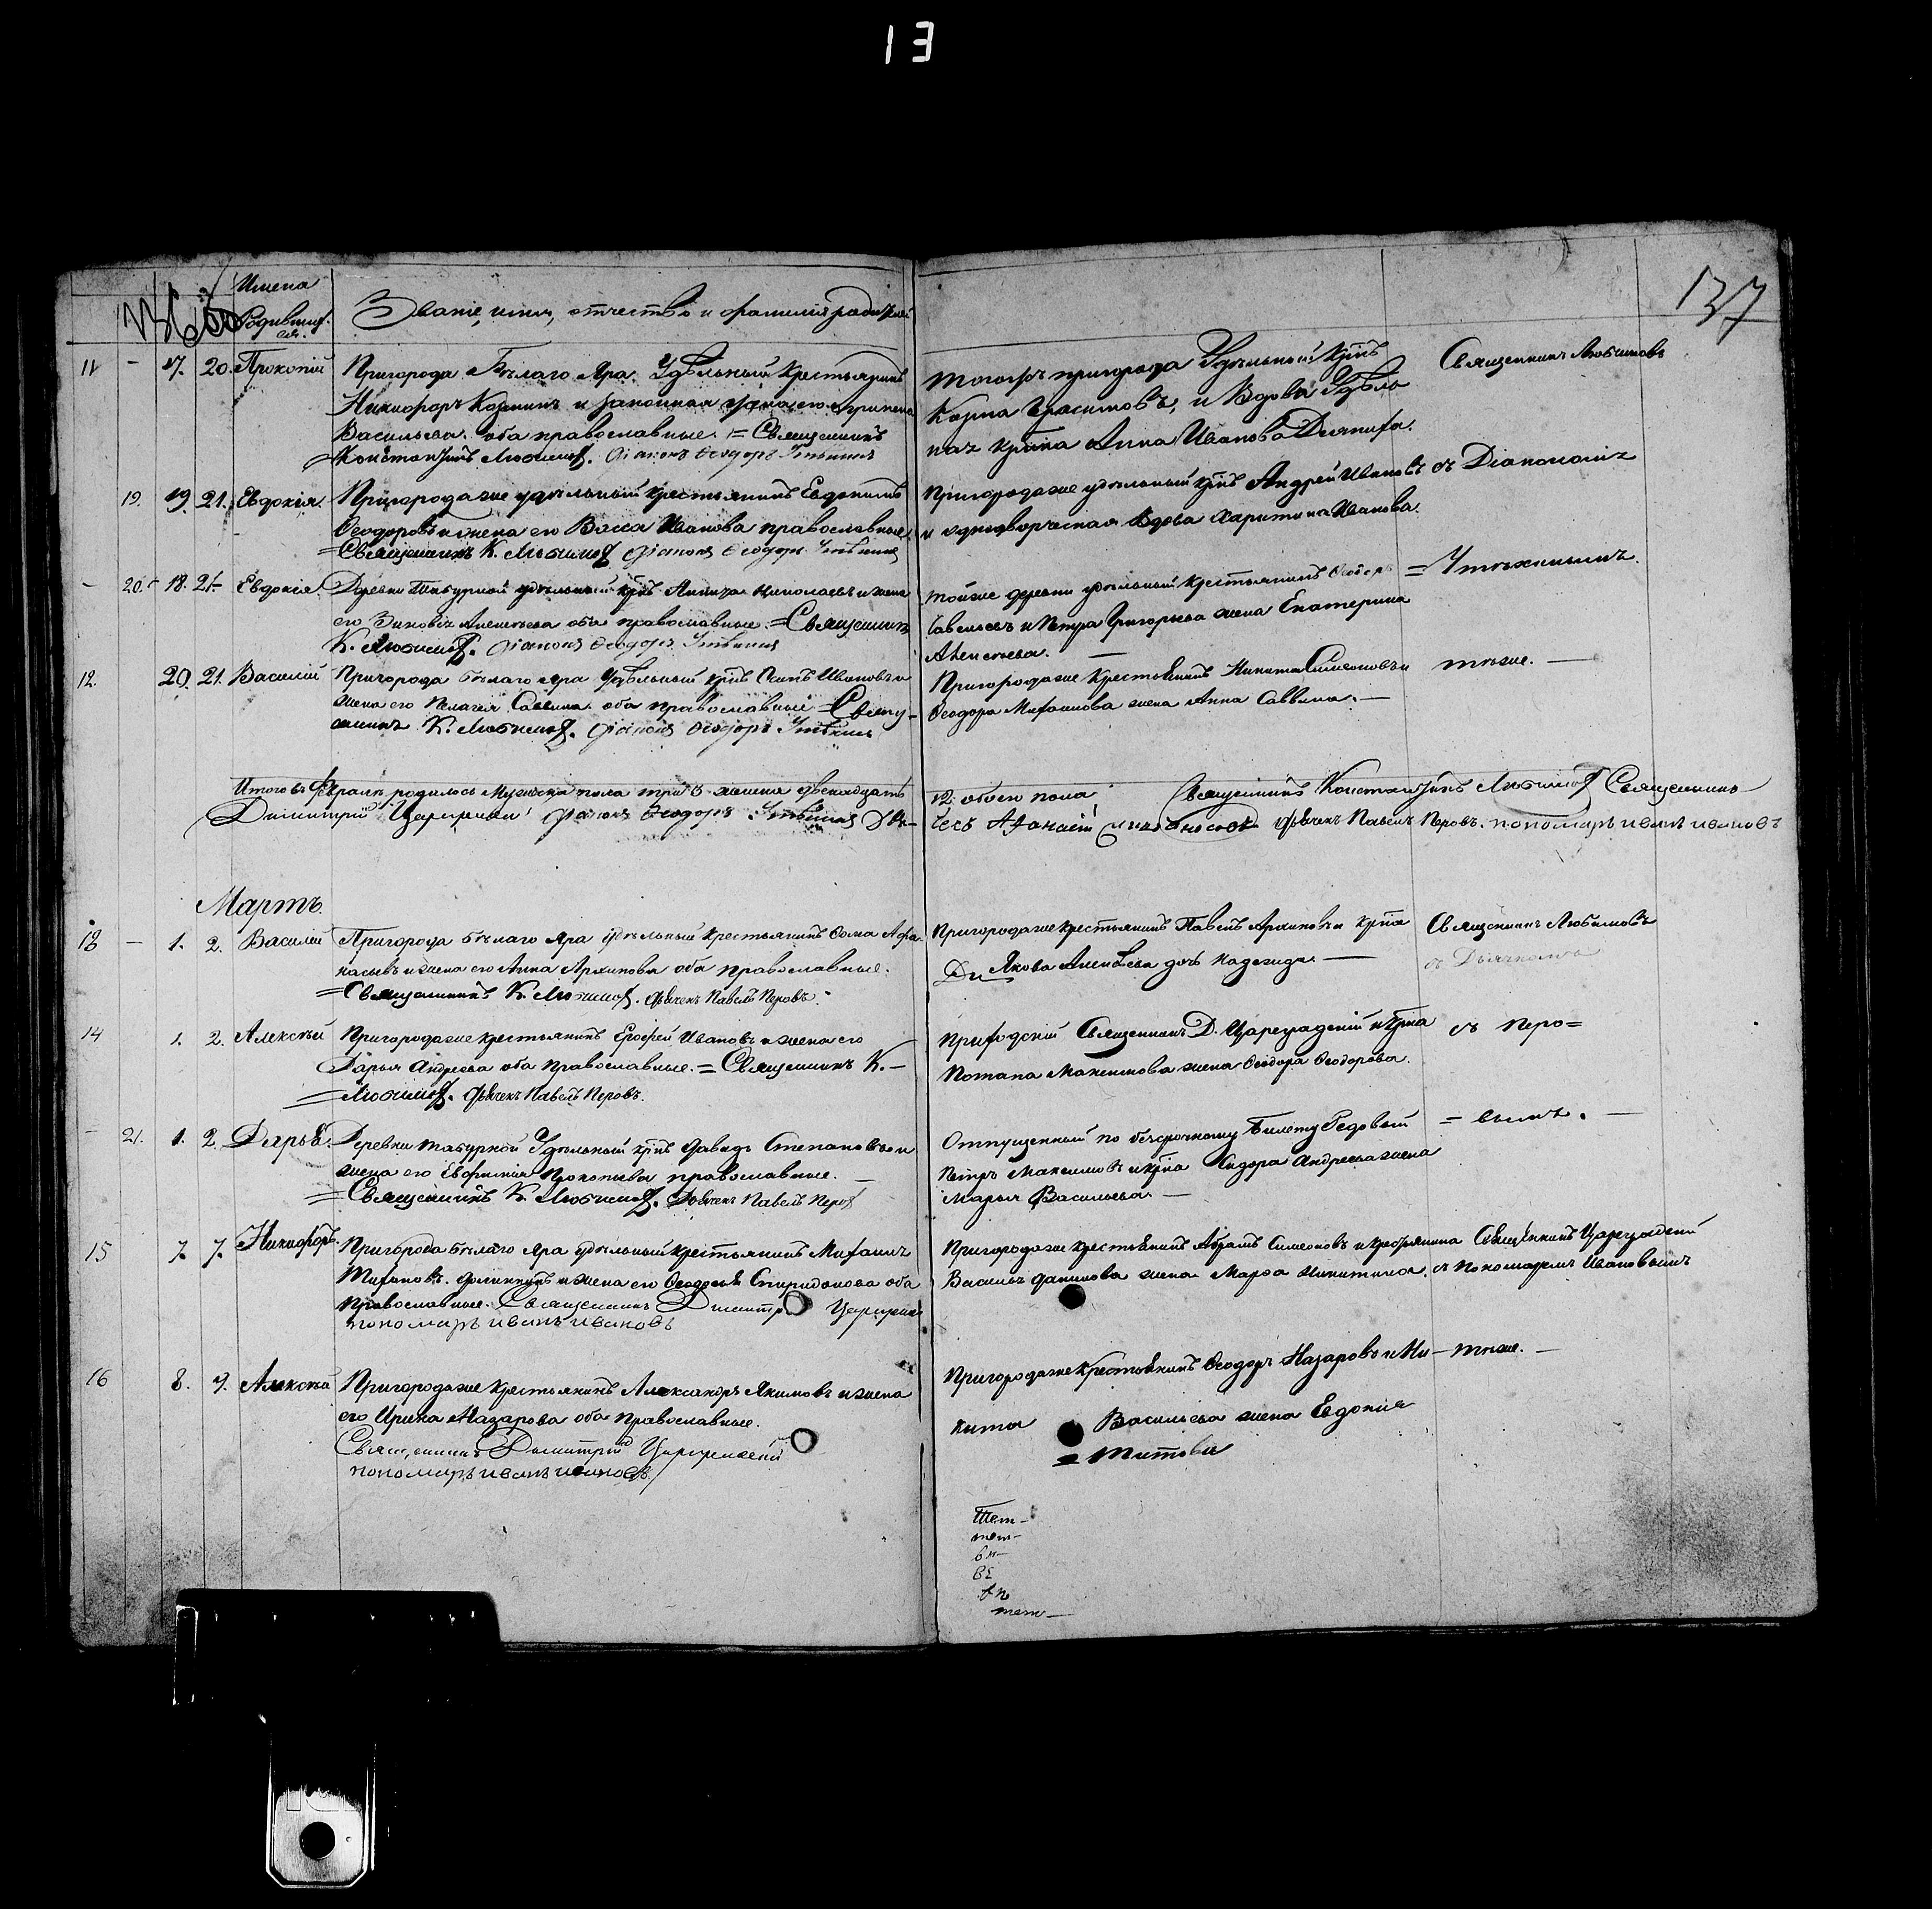 13
137
Имена
Родивших-
ся.
Званіе, имя, отчество и фамилія родителей
11 - 17. 20. Прокопій
Пригорода Бѣлаго Яра Удѣльный крестьянинъ
Никифоръ Козминъ и законная жена его Агрипена
Васильева оба православные. = Священникъ
Константинъ Любимовъ. Діаконъ Ѳеодоръ
тогожъ пригорода Удѣльный крнъ
Козма Герасимовъ, и Вдова Удѣль
ная крнка Анна Иванова
Священникъ Любимовъ
19. 19. 21. Евдокія.
Пригорода же удѣльный крестьянинъ Евдокимъ
Ѳеодоровъ и жена его Васса Иванова православные
= Священникъ К. Любимовъ Діаконъ Ѳеодоръ
Пригорода же удѣльный крнъ Андрей Ивановъ
и однодворческая вдова Харитина Иванова.
съ Діакономъ
- 20. 18. 21. Евдокія
Деревни удѣльный крнъ Николаевъ и жена
его Зиновія Алексѣева оба православные = Священникъ
К. Любимовъ. Діаконъ Ѳеодоръ
тойже деревни удѣльный крестьянинъ Ѳеодоръ
Савельевъ и Петра Григорьева жена Екатерина
Алексѣева. -
12. 20. 21. Василій
Пригорода Бѣлаго Яра Удѣльный крнъ Осипъ Ивановъ и
жена его Пелагея Саввина оба православныи = Свящ-
енникъ К. Любимовъ. Діаконъ Ѳеодоръ
Пригорода же крестьянинъ Никита Симеоновъ и
Ѳеодора Митаилова жена Анна Саввина. -
тѣже. -
Итого въ Февралѣ родилось Мужеска пола три 3 женска двенадцать
12 обоего пола Священникъ Константинъ Любимовъ Священникъ
Димитрій Діаконъ Ѳеодоръ Дья-
чекъ Аѳанасій Дьячекъ Павелъ Перовъ. пономарь иванъ ивановъ
Мартъ.
13 - 1. 2. Василій
Пригорода Бѣлаго Яра удѣльный крестьянинъ Ѳома Аѳа-
насьевъ и жена его Анна Архипова оба православные.
= Священникъ К. Любимовъ. Дьячекъ Павелъ Перовъ.
Пригорода же крестьянинъ Павелъ Архиповъ и крна
Якова Алексѣева дочь Надежда. -
Священникъ Любимовъ
съ Дьячкомъ
14 1. 2. Алексѣй
Пригорода же крестьянинъ Ерофей Ивановъ и жена его
Дарья Андреева оба православные. = Священникъ К. -
= Любимовъ. Дьячекъ Павелъ Перовъ.
Приходскій Священникъ Д. Цареградскій и крна
Потапа Максимова жена Ѳеодора Ѳеодорова.
съ Перо=
- 21. 1. 2. Дарья.
Деревни Удѣльный крнъ Давидъ Степановъ и
жена его Евфимія Прокопьева православные. -
= Священникъ К. Любимовъ. Дьячекъ Павелъ Перовъ
Отпущенный по безсрочному Билету Рядовый
Петръ Максимовъ и крна Сидора Андреева жена
Марья Васильева. -
= вымъ. -
15 7. 7. Никифоръ.
Пригорода Бѣлаго Яра удѣльный крестьянинъ Михаилъ
и жена его Ѳеодосья Спиридонова оба
православные. Священникъ Димитрій
пономарь иванъ ивановъ
Пригорода же крестьянинъ Абрамъ Симеоновъ и крестьянина
Василья Данилова жена Марфа Никитина.
Священникъ Цареградскій
съ пономаремъ Ивановымъ
16 8. 9. Алексѣй
Пригорода же крестьянинъ Александръ Якимовъ и жена
его Ирина Назарова оба православные.
Священникъ Димитрій
пономарь иванъ ивановъ.
Пригорода же крестьянинъ Ѳеодоръ Назаровъ и Ни-
кита Васильева жена Евдокія
= Титова
тѣже. -